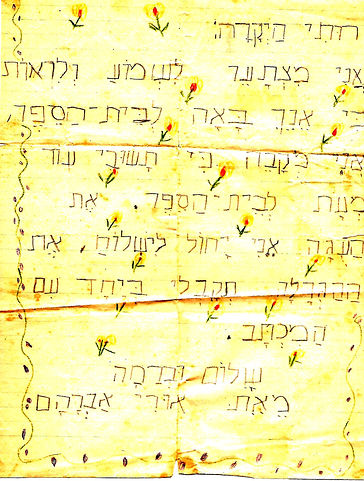 רותי היקרה!
אני מצתער לשמוע ולראות
כי אנך באה לבית-הספר,
אני מקבה כי תשובי עוד
מעת לבית-הספר. את
העגה אני יכול לישלוח, את
ההגרלה תקבלי ביחד עם
המכתב.
שלום וברכה
מאת: אורי אברהם